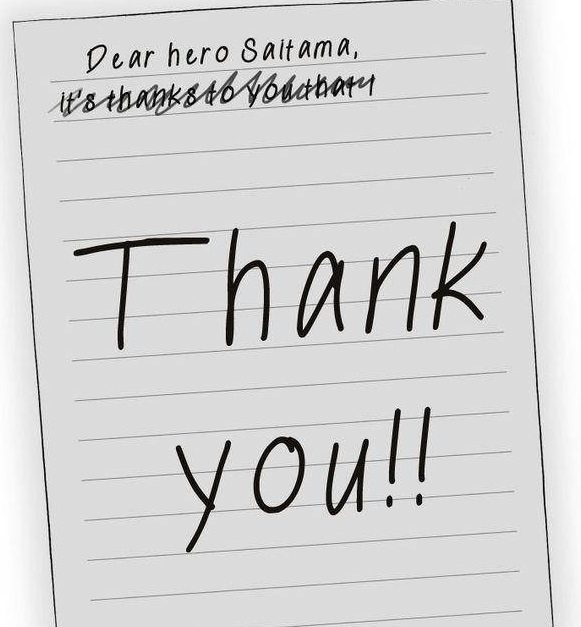 Dear hero Saitama,
it's thanks to you that I
Thank
you!!